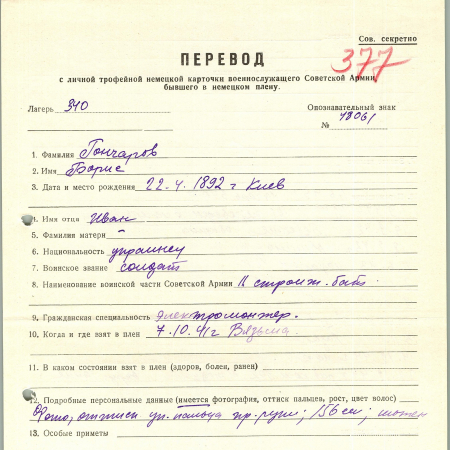 Сов. секретно
377
ПЕРЕВОД
с личной трофейной немецкой карточки военнослужащего Советской Армии,
бывшего в немецком плену.
Лагерь 340 Опознавательный знак
№ 48061
1. Фамилия Гончаров
2. Имя Борис
3. Дата и место рождения 22.4.1892 г Киев
4. Имя отца Иван
5. Фамилия матери -
6. Национальность украинец
7. Воинское звание солдат
8. Наименование воинской части Советской Армии 11 строит. бат.
9. Гражданская специальность электромонтер.
10. Когда и где взят в плен 7.10.41г Вязьма
11. В каком состоянии взят в плен (здоров, болен, ранен)
12. Подробные персональные данные (имеется фотография, оттиск пальцев, рост, цвет волос)
Фото, оттиск ук. пальца пр. руки; 156 см;
13. Особые приметы